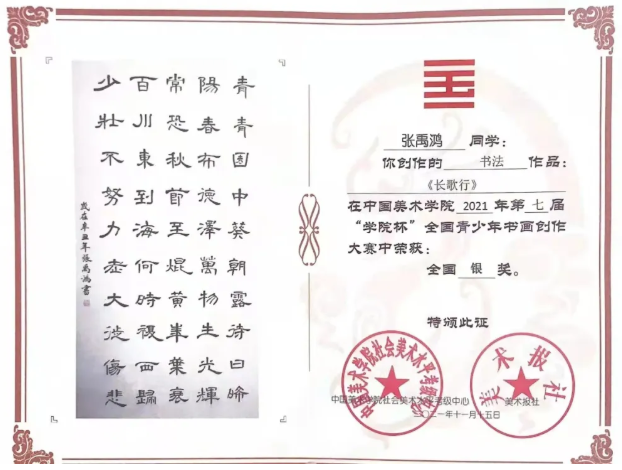 青青園中葵朝露待日晞
陽春布德澤萬物生光輝
常恐秋節至焜黃華葉衰
百川東到海何時復西歸
少壯不努力老大徒傷悲
歲在辛丑年張禹鴻書
张禹鸿 同学：
你创作的 书法 作品：
《长歌行》
在中国美术学院 2021 年第 七 届
“学院杯”全国青少年书画创作
大赛中荣获：
全国 银 奖。
特颁此证
中国美术学院社会美术水平考级中心
美术报社
中国美术学院社会美术水平考级中心 美术报社
二〇二一年十一月十五日